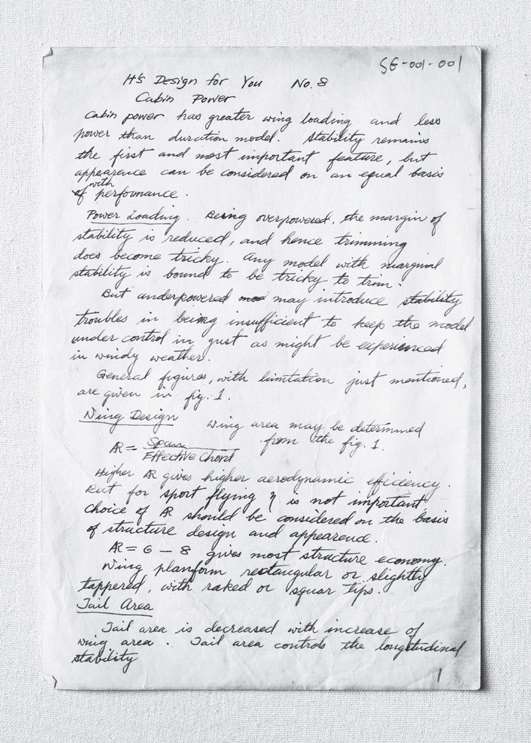 SG-001-001
H's Design for You No. 8
Cabin Power
Cabin power has greater wing loading and less
power than duration model. Stability remains
the first and most important feature, but
appearance can be considered on an equal basis
with
of performance.
Power Loading. Being overpowered, the margin of
stability is reduced, and hence trimming
does become tricky. Any model with marginal
stability is bound to be tricky to trim.
But underpowered may introduce stability
troubles in being insufficient to keep the model
under control in gust as might be experienced
in windy weather.
General figures, with limitation just mentioned,
are given in fig. 1.
Wing Design Wing area may be determined
from the fig. 1.
AR = Span
Effective Chord
Higher AR gives higher aerodynamic efficiency.
But for sport flying η is not important.
Choice of AR should be considered on the basis
of structure design and appearence.
AR = 6 – 8 gives most structure economy.
Wing planform rectangular or slightly
tappered, with raked or squar tips.
Tail Area
Tail area is decreased with increase of
wing area. Tail area controls the longitudinal
stability
1